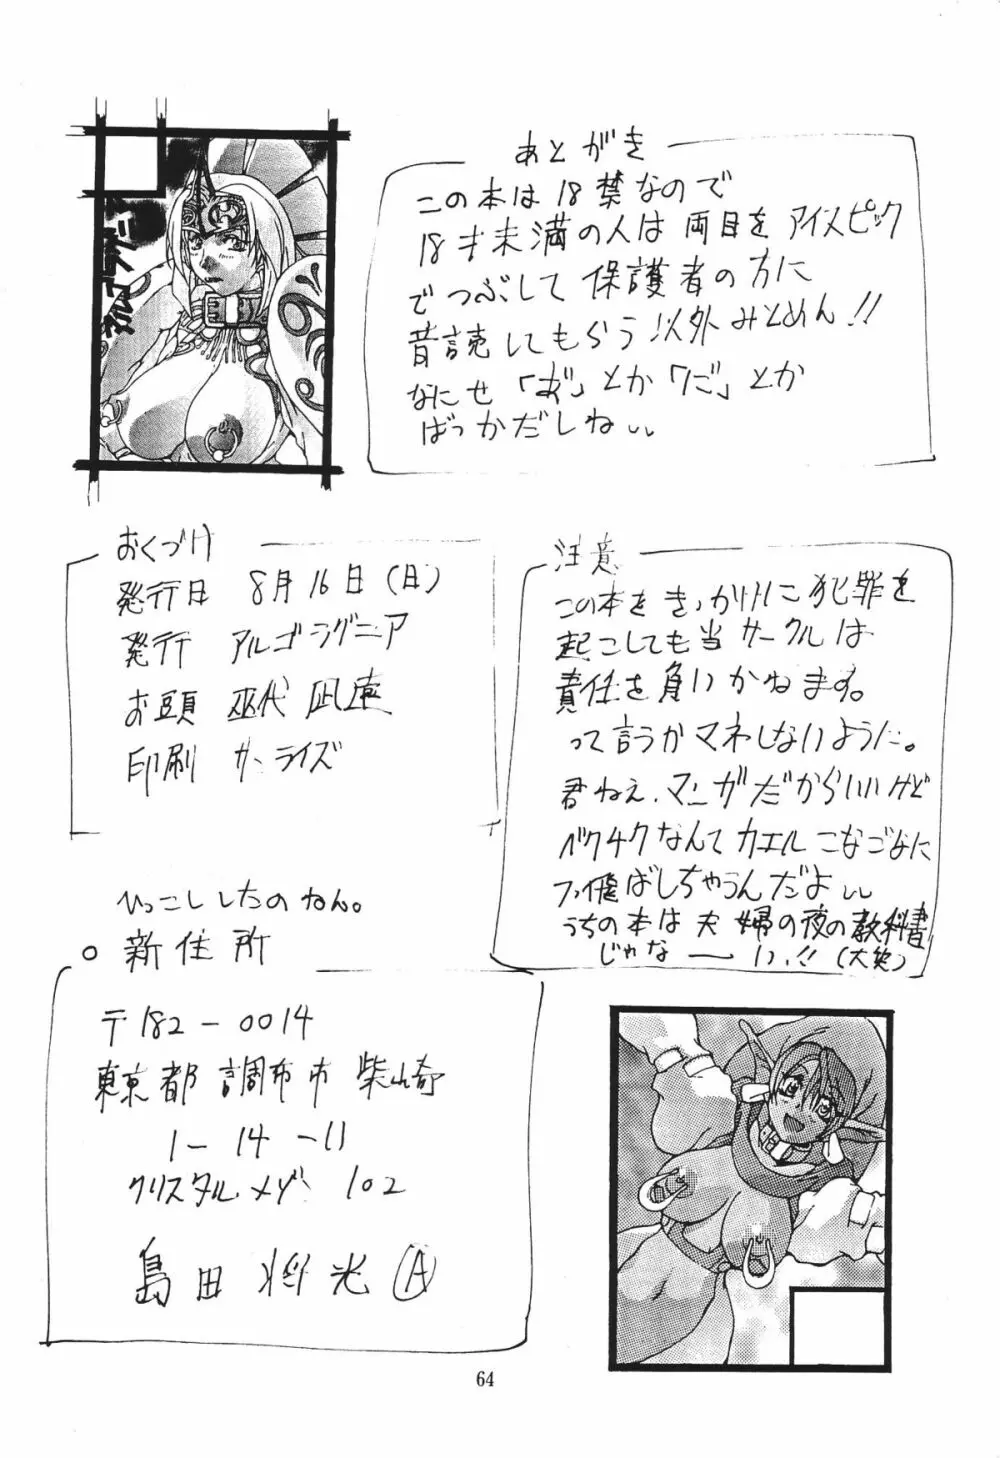 あとがき
この本は18禁なので
18才未満の人は両目をアイスピック
でつぶして保護者の方に
音読してもらう以外みとめん!!
なにせ「お」とか「ご」とか
ばっかだしね…
おくづけ
発行日 8月16日(日)
発行 アルゴラグニア
お頭 巫代凪遠
印刷 サンライズ
注意
この本をきっかけに犯罪を
起こしても当サークルは
責任を負いかねます。
って言うかマネしないように。
君ねえ、マンガだからいいけど
ベクチクなんてカエルこなごなに
フッ飛ばしちゃうんだよ…
うちの本は夫婦の夜の教科書
じゃなーい!!(大笑)
ひっこししたのねん。
○新住所
〒182-0014
東京都調布市柴崎
1-14-11
クリスタルメゾン 102
島田将光 A
64